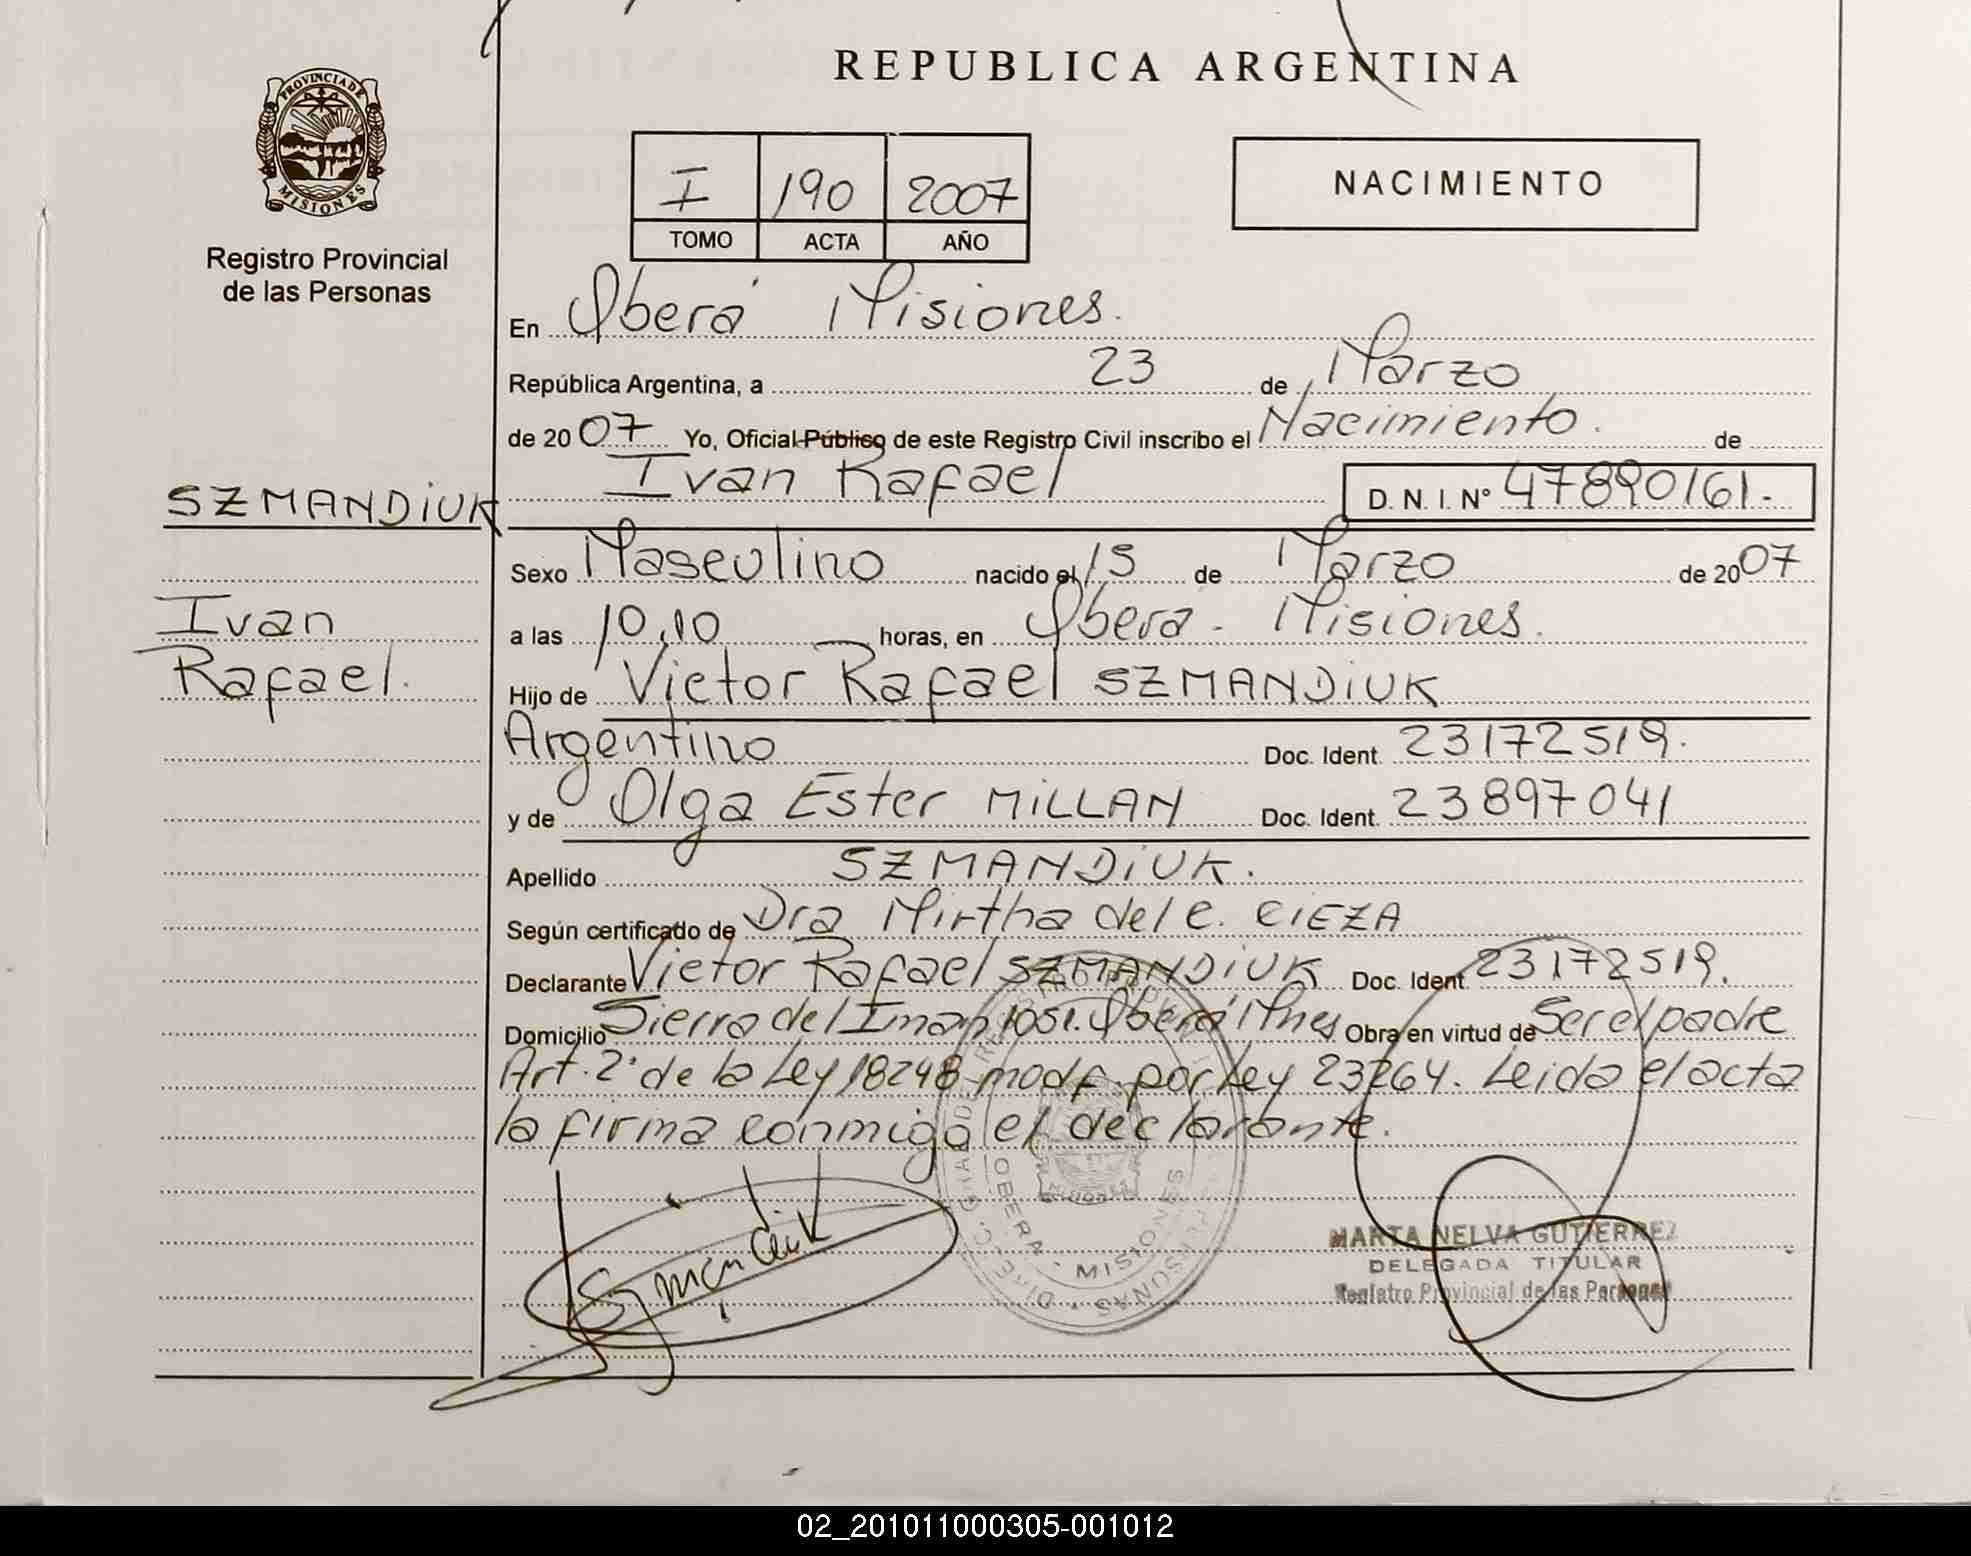 REPUBLICA ARGENTINA
PROVINCIA DE
MISIONES
Registro Provincial
de las Personas
I 190 2007
TOMO ACTA AÑO
NACIMIENTO
En Oberá Misiones.
República Argentina, a 23 de Marzo
de 2007 Yo, Oficial Público de este Registro Civil inscribo el Nacimiento. de
Ivan Rafael D. N. I. N° 47890161.-
SZMANDiUK
Ivan
Rafael.
Sexo Masculino nacido el 15 de Marzo de 2007
a las 10,10 horas, en Oberá - Misiones.
Hijo de Victor Rafael SZMANDiUK
Argentino Doc. Ident. 23172519.
y de Olga Ester MiLLAN Doc. Ident. 23897041
Apellido SZMANDiUK.
Según certificado de Dra Mirtha del C. CiEZA
Declarante Victor Rafael SZMANDiUK Doc. Ident. 23172519.
Domicilio Sierra del Iman 1051. Oberá Mnes Obra en virtud de Ser el padre
Art. 2° de la Ley 18248 modf. por Ley 23264. Leida el acta
la firma conmigo el declarante.
OBERA - MISIONES
MARTA NELVA GUTIERREZ
DELEGADA TITULAR
Registro Provincial de las Personas
02_201011000305-001012